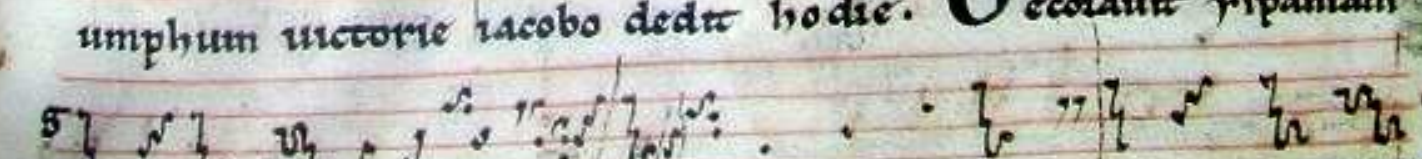 umphum uictorie iacobo dedit hodie. Decorauit yspaniam